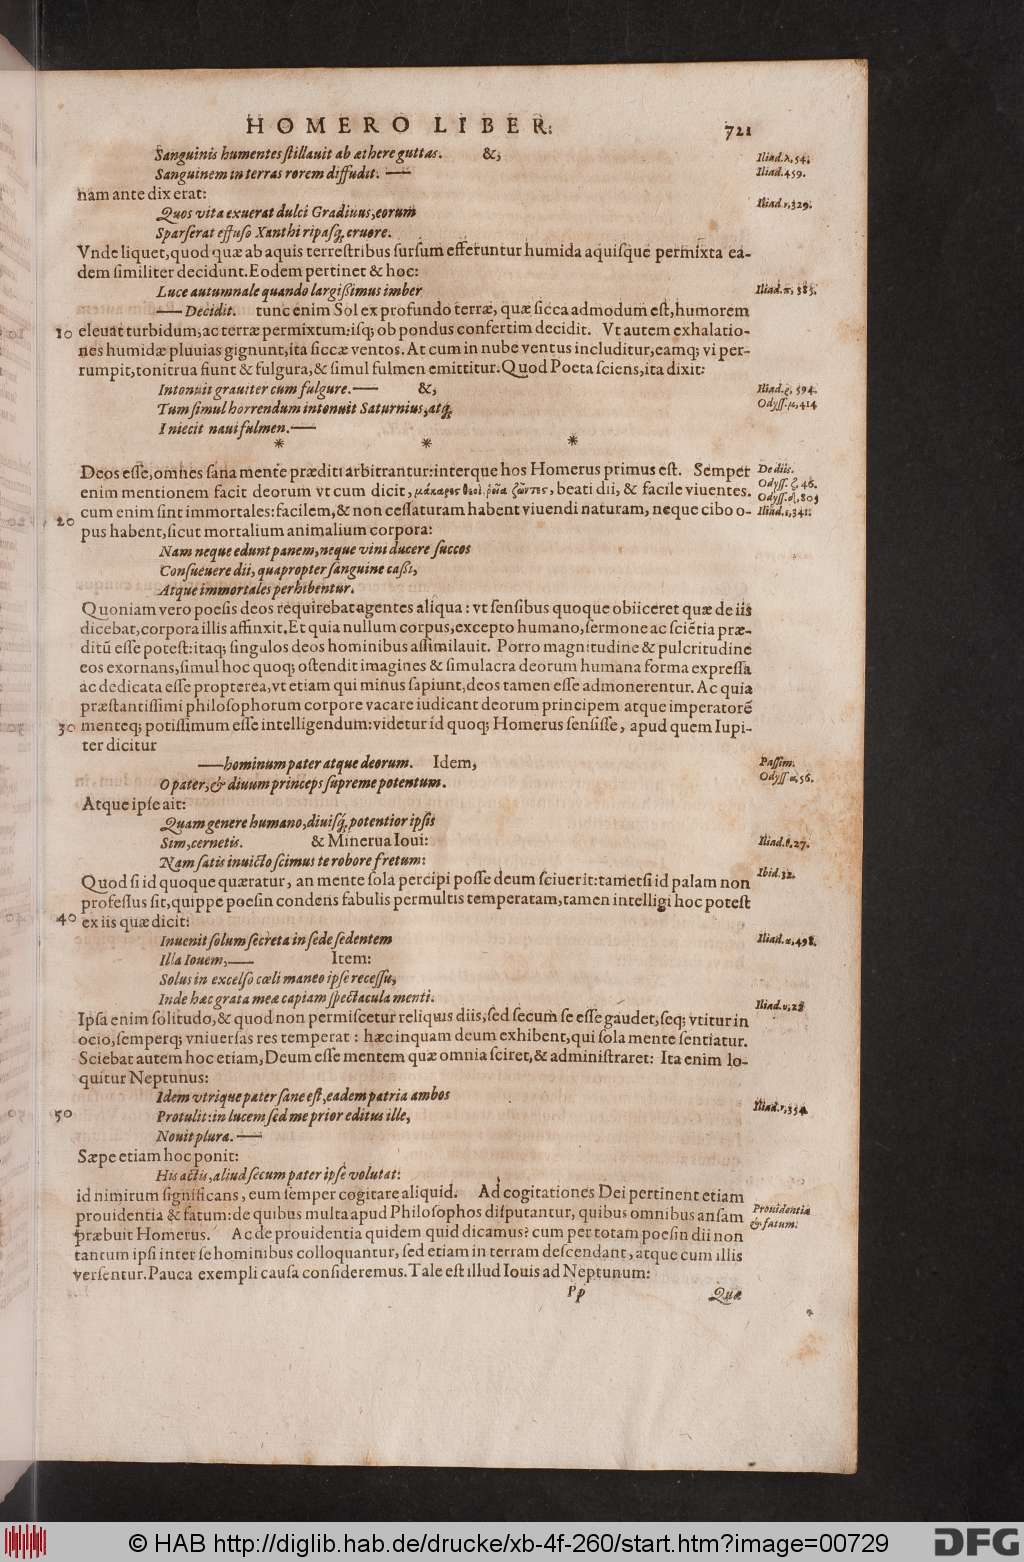 HOMERO LIBER. 721
Sanguinis humentes ſtillauit ab æthere guttas. &, Iliad.λ,54.
Sanguinem in terras rorem diffudit. — Iliad.459.
nam ante dixerat:
Quos vita exuerat dulci Gradiuus, eorum Iliad.ν,329.
Sparſerat effuſo Xanthi ripaſq; cruore.
Vnde liquet, quod quæ ab aquis terreſtribus ſurſum efferuntur humida aquiſque permixta ea-
dem ſimiliter decidunt. Eodem pertinet & hoc:
Luce autumnale quando largißimus imber Iliad.π,385.
— Decidit. tunc enim Sol ex profundo terræ, quæ ſicca admodum eſt, humorem
10 eleuat turbidum, ac terræ permixtum: iſq; ob pondus confertim decidit. Vt autem exhalatio-
nes humidæ pluuias gignunt, ita ſiccæ ventos. At cum in nube ventus includitur, eamq; vi per-
rumpit, tonitrua fiunt & fulgura, & ſimul fulmen emittitur. Quod Poeta ſciens, ita dixit:
Intonuit grauiter cum fulgure. — &, Iliad.ρ,594.
Tum ſimul horrendum intonuit Saturnius, atq; Odyſſ.μ,414
Iniecit naui fulmen. —
* * *
Deos eſſe, omnes ſana mente præditi arbitrantur: interque hos Homerus primus eſt. Semper De diis.
enim mentionem facit deorum vt cum dicit, μάκαρες θεοὶ ῥεῖα ζῶντες, beati dii, & facile viuentes. Odyſſ.ζ,46.
Odyſſ.δ,805
cum enim ſint immortales: facilem, & non ceſſaturam habent viuendi naturam, neque cibo o- Iliad.ε,341.
20 pus habent, ſicut mortalium animalium corpora:
Nam neque edunt panem, neque vini ducere ſuccos
Conſueuere dii, quapropter ſanguine caßi,
Atque immortales perhibentur.
Quoniam vero poeſis deos requirebat agentes aliqua: vt ſenſibus quoque obiiceret quæ de iis
dicebat, corpora illis affinxit. Et quia nullum corpus, excepto humano, ſermone ac ſciētia præ-
ditū eſſe poteſt: itaq; ſingulos deos hominibus aſſimilauit. Porro magnitudine & pulcritudine
eos exornans, ſimul hoc quoq; oſtendit imagines & ſimulacra deorum humana forma expreſſa
ac dedicata eſſe propterea, vt etiam qui minus ſapiunt, deos tamen eſſe admonerentur. Ac quia
præſtantiſſimi philoſophorum corpore vacare iudicant deorum principem atque imperatorē
30 menteq; potiſſimum eſſe intelligendum: videtur id quoq; Homerus ſenſiſſe, apud quem Iupi-
ter dicitur
— hominum pater atque deorum. Idem, Paſſim.
O pater, & diuum princeps ſupreme potentum. Odyſſ α,56.
Atque ipſe ait:
Quam genere humano, diuiſq; potentior ipſis
Sim, cernetis. & Minerua Ioui: Iliad.θ,27.
Nam ſatis inuicto ſcimus te robore fretum:
Quod ſi id quoque quæratur, an mente ſola percipi poſſe deum ſciuerit: tametſi id palam non Ibid.32.
profeſſus ſit, quippe poeſin condens fabulis permultis temperatam, tamen intelligi hoc poteſt
40 ex iis quæ dicit:
Inuenit ſolum ſecreta in ſede ſedentem Iliad.α,498.
Illa Iouem, — Item:
Solus in excelſo cœli maneo ipſe receſſu,
Inde hæc grata meæ capiam ſpectacula menti. Iliad.υ,22
Ipſa enim ſolitudo, & quod non permiſcetur reliquis diis, ſed ſecum ſe eſſe gaudet, ſeq; vtitur in
ocio, ſemperq; vniuerſas res temperat: hæc inquam deum exhibent, qui ſola mente ſentiatur.
Sciebat autem hoc etiam, Deum eſſe mentem quæ omnia ſciret, & adminiſtraret: Ita enim lo-
quitur Neptunus:
Idem vtrique pater ſane eſt, eadem patria ambos
50 Protulit: in lucem ſed me prior editus ille, Iliad.ν,354.
Nouit plura. —
Sæpe etiam hoc ponit:
His actis, aliud ſecum pater ipſe volutat:
id nimirum ſignificans, eum ſemper cogitare aliquid. Ad cogitationes Dei pertinent etiam
prouidentia & fatum: de quibus multa apud Philoſophos diſputantur, quibus omnibus anſam Prouidentia
& fatum.
præbuit Homerus. Ac de prouidentia quidem quid dicamus? cum per totam poeſin dii non
tantum ipſi inter ſe hominibus colloquantur, ſed etiam in terram deſcendant, atque cum illis
verſentur. Pauca exempli cauſa conſideremus. Tale eſt illud Iouis ad Neptunum:
Pp Quæ
© HAB http://diglib.hab.de/drucke/xb-4f-260/start.htm?image=00729
DFG